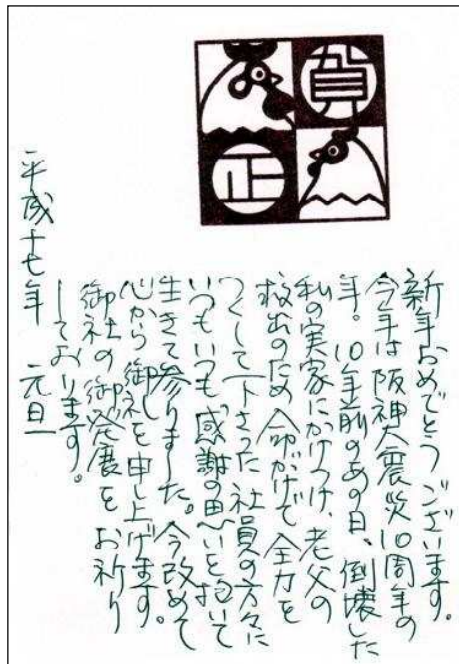 賀
正
新年おめでとうございます。
今年は阪神大震災10周年の
年。10年前のあの日、倒壊した
私の実家にかけつけ、老父の
救出のため命がけで全力を
つくして下さった社員の方々に
いつもいつも感謝の思いを抱いて
生きて参りました。今改めて
心から御礼を申し上げます。
御社の御発展をお祈り
しております。
平成十七年 元旦